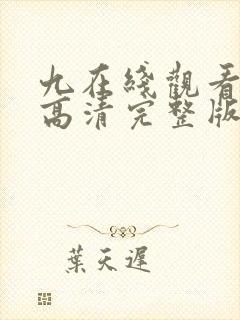 九在綫觀看
高清完整版
葉天遲